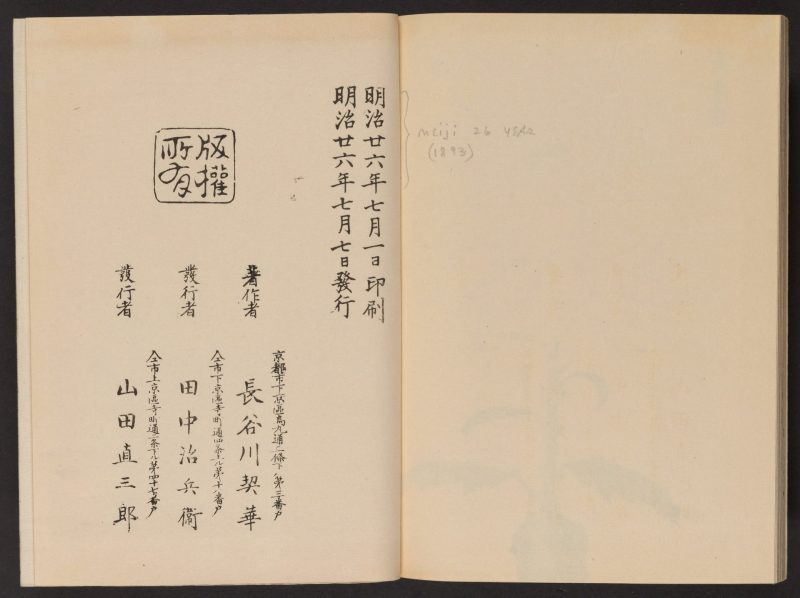 明治廿六年七月一日印刷
明治廿六年七月七日發行
版權
所有
著作者
京都市下京區烏丸通二條下ル第三番戸
長谷川契華
發行者
仝市下京區寺町通四条上ル第十八番戸
田中治兵衞
發行者
仝市上京區寺町通二条下ル第四十七番戸
山田直三郎
Meiji 26 year
(1893)